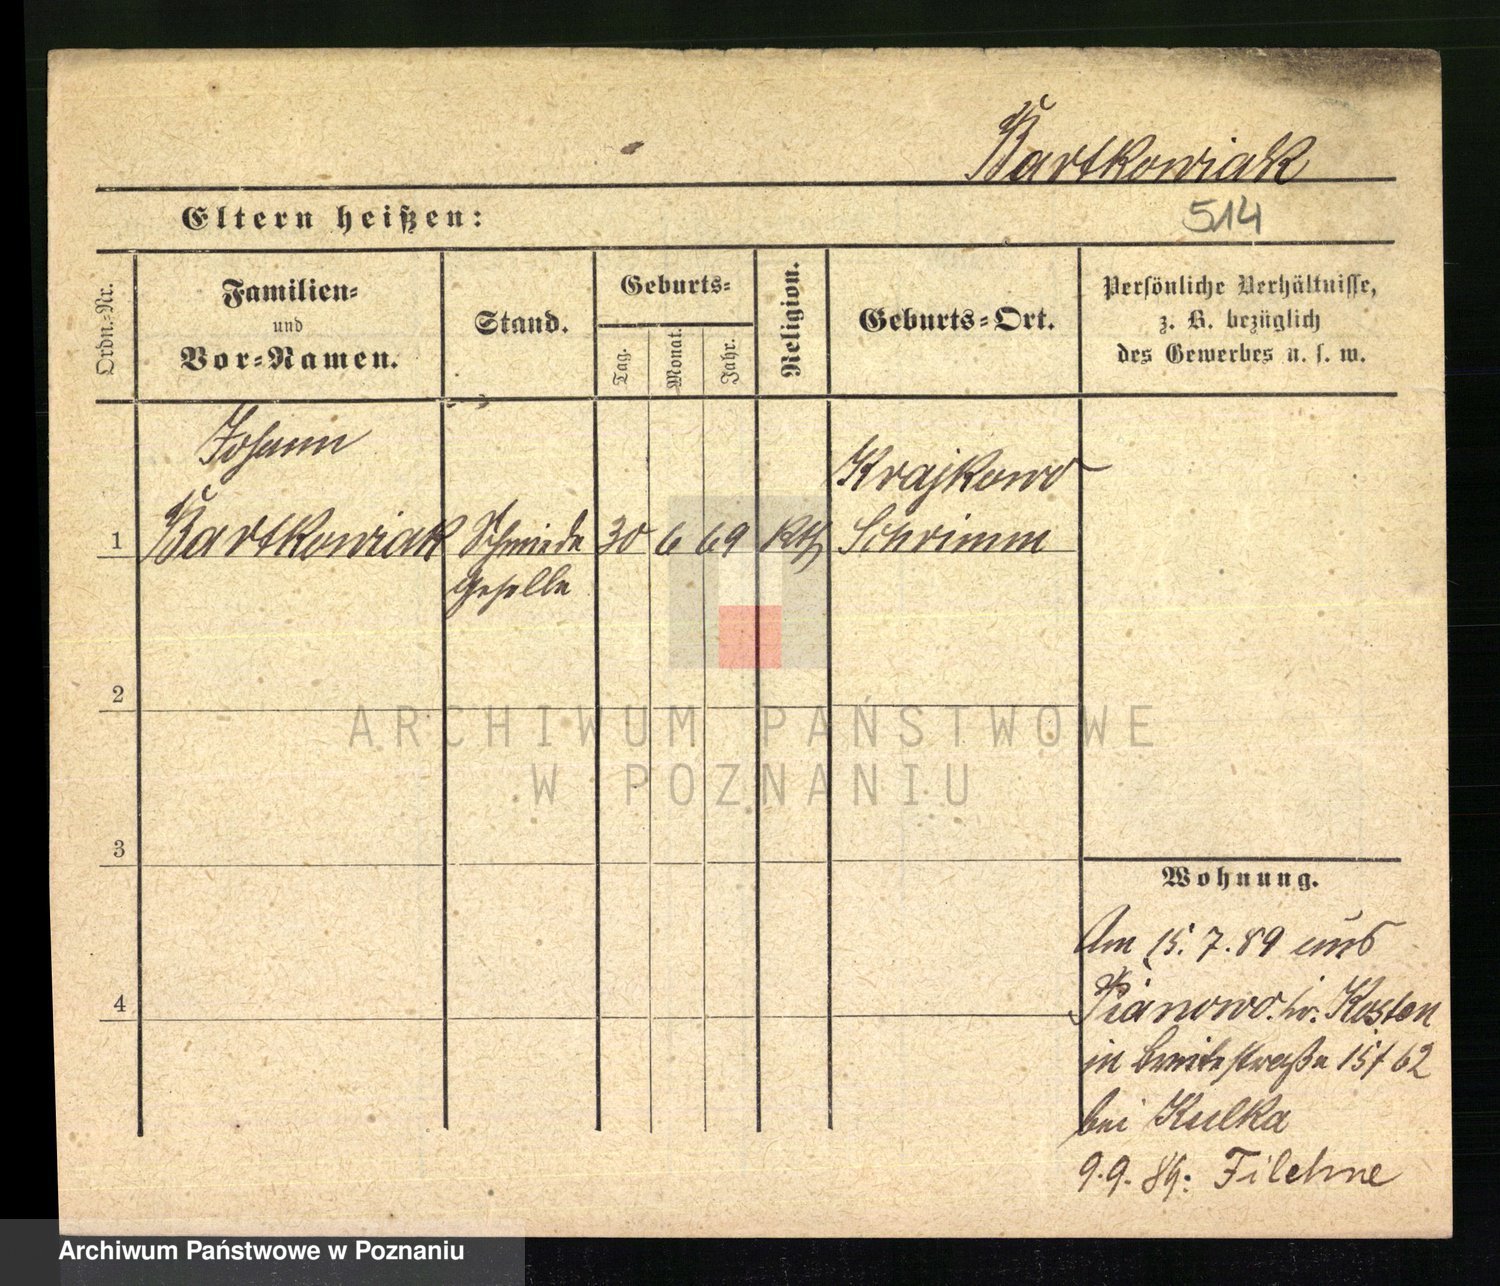 Bartkowiak
Eltern heißen:
514
Ordn.-Nr.
Familien-
und
Vor-Namen.
Stand.
Geburts-
Tag.
Monat.
Jahr.
Religion.
Geburts-Ort.
Persönliche Verhältnisse,
z. B. bezüglich
des Gewerbes u. s. w.
Johann
Krajkowo
1 Bartkowiak Schmiede 30 6 69 kth Schrimm
Geselle
2
ARCHIWUM PAŃSTWOWE
W POZNANIU
3
Wohnung.
Am 15.7.89 aus
4 Pianowo. Kr. Kosten
in Breitestraße 15/ 62
bei Kulka
9.9.89: Filehne
Archiwum Państwowe w Poznaniu